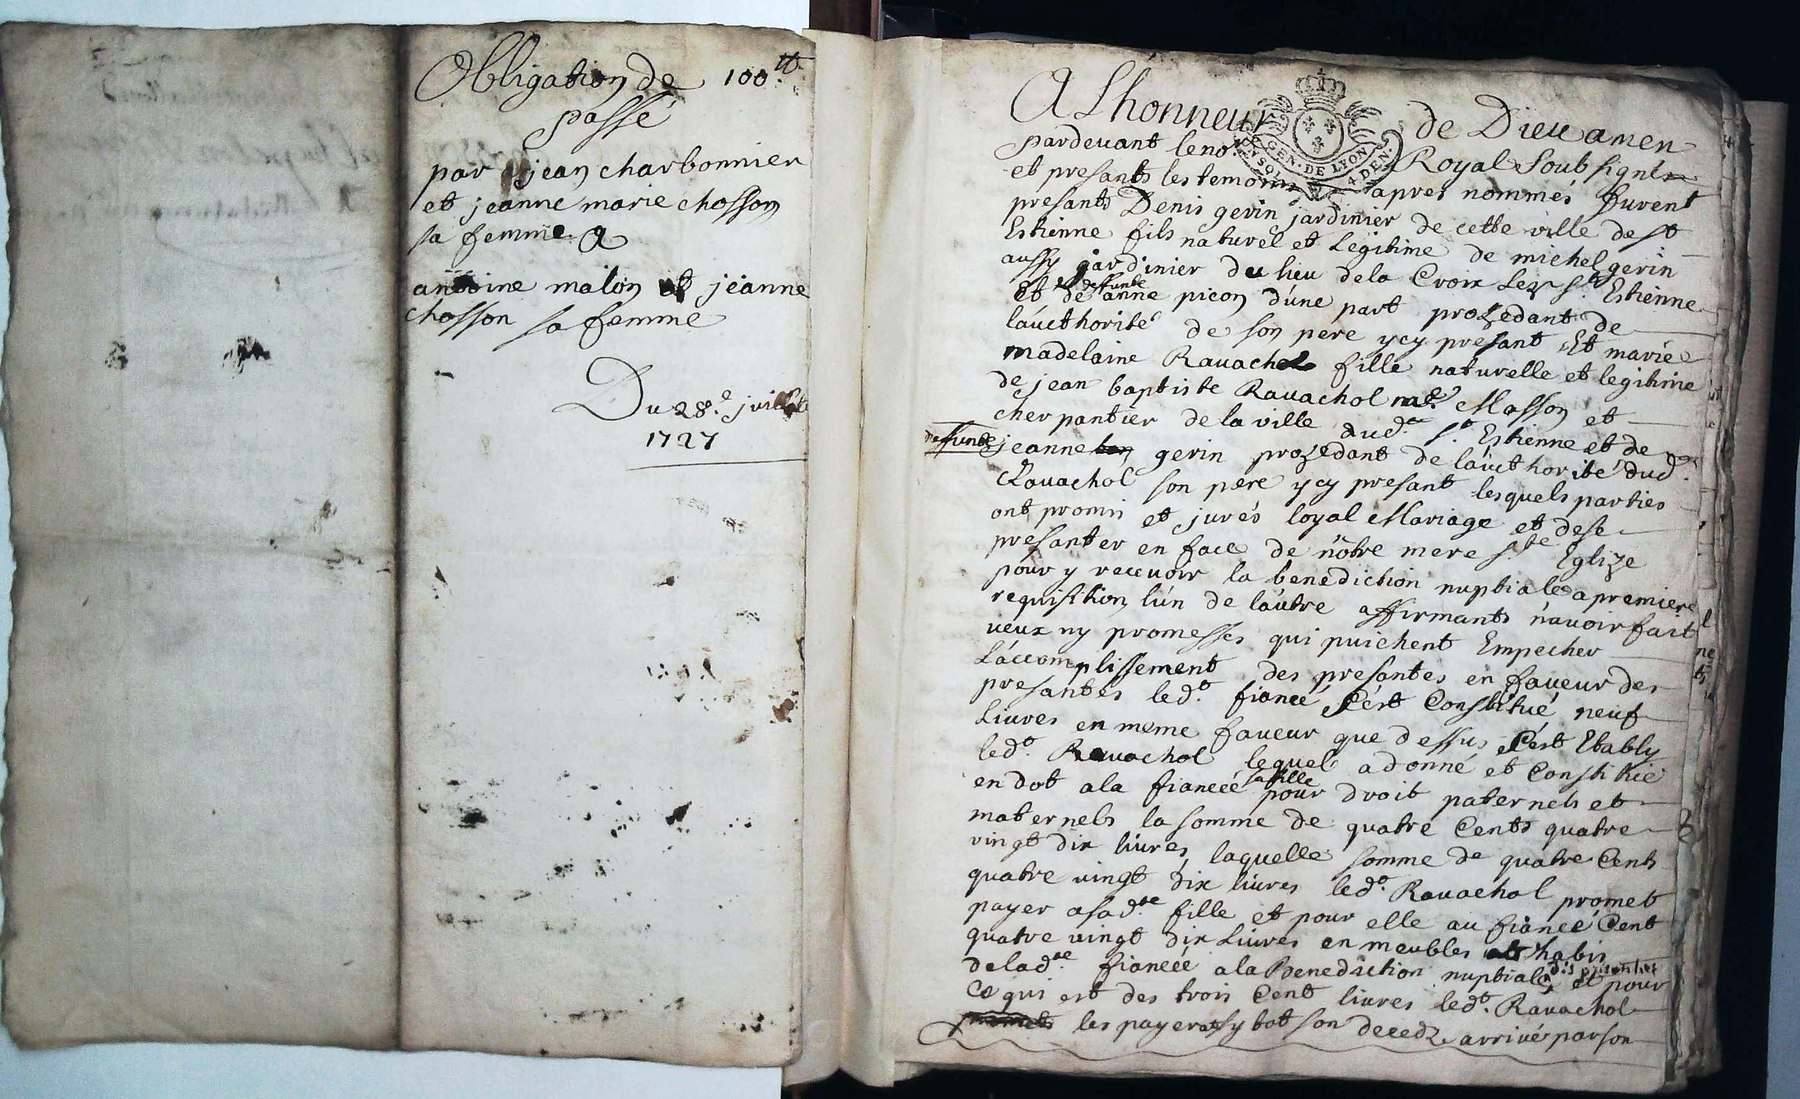 Obligation de 100 ₶
passé
par jean charbonnier
et jeanne marie chosson
sa femme a
antoine malon et jeanne
chosson sa femme
Du 28.e juillet
1727
A L'honneur de Dieu amen
pardevant le no.re Royal Soubsigné
et presants les temoins apres nommés furent
GEN. DE LYON
4 DEN.
presants Denis gerin jardinier de cette ville de st
Estienne fils naturel et Legitime de michel gerin
aussy jardinier du lieu de la Croix Lez St Estienne
et de deffunte anne picon d'une part prozedant de
l'authorité de son pere ycy presant Et marie
madelaine Ravachol fille naturelle et legitime
de jean baptiste Ravachol me. Masson et
cherpantier de la ville dud. St. Estienne et de
deffunte jeanne gerin prozedant de l'authorité dud.
Ravachol son pere ycy presant lesquels parties
ont promis et jurés loyal Mariage et de se
presanter en face de nôtre mere s.te Eglize
pour y recevoir la benediction nuptiale a premiere
requisition l'un de l'autre affirmants n'avoir fait
veux ny promesses qui puichent Empecher
L'accomplissement des presantes en faveur des
presantes led.t fiancé s'est Constitué neuf
Livres en meme faveur que dessus s'est Etably
led.t Ravachol lequel a donné et Constitué
en dot a la fiancée sa fille pour droit paternels et
maternels la somme de quatre Cents quatre
vingt dix livres laquelle somme de quatre Cents
quatre vingt dix livres led.t Ravachol promet
payer a sad.te fille et pour elle au fiancé Cent
quatre vingt dix Livres en meubles et habis
de lad.te fiancée a la Benediction nuptiale et pour
Ce qui est des trois Cent livres led.t Ravachol
les payera sytot son decedz arrivé par son